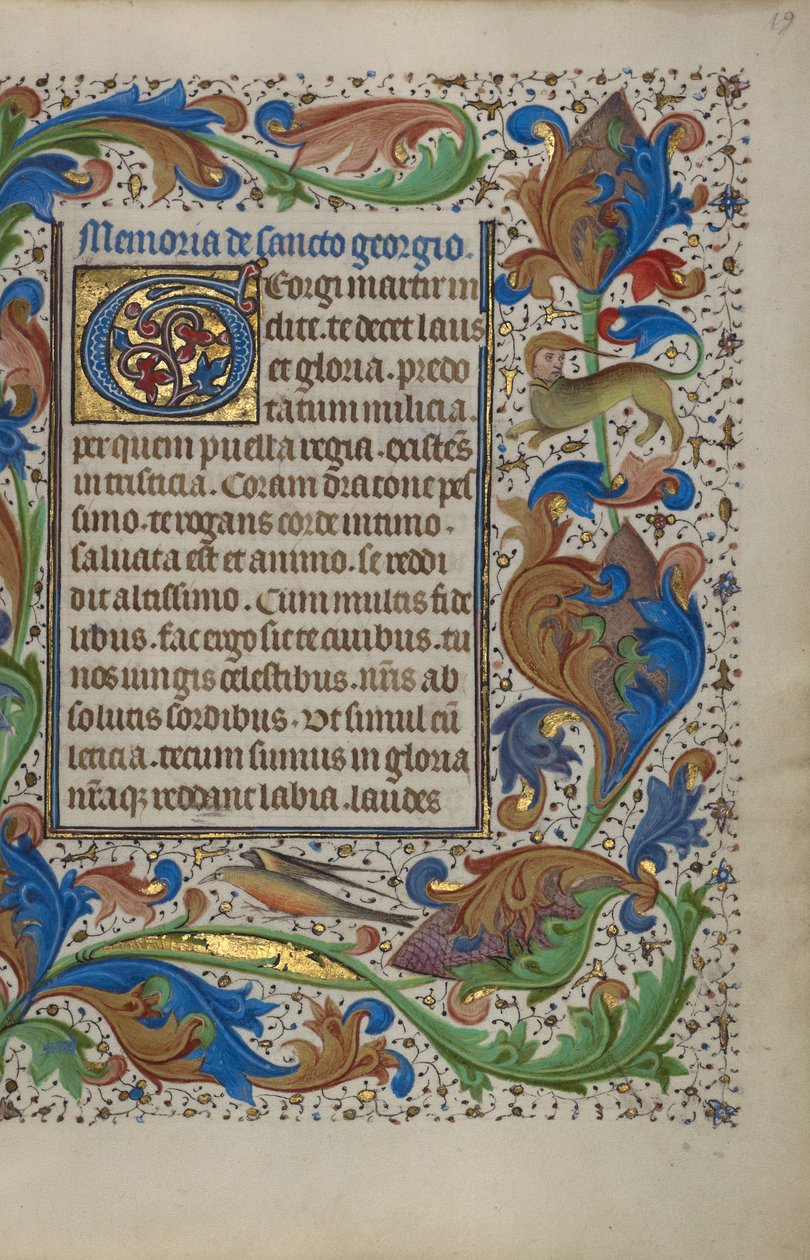 19
Memoria de sancto georgio.
Georgi martir in
clite. te decet laus
et gloria. predo
tatum milicia.
per quem puella regia. existēs
in tristicia. Coram dracone pes
simo. te rogans corde intimo.
saluata est et animo. se reddi
dit altissimo. Cum multis fide
libus. fac ergo sic te ciuibus. tu
nos iungis celestibus. nr̄is ab
solutis sordibus. Ut simul cū
leticia. tecum sumus in gloria
nr̄aqꝫ reddant labia. laudes